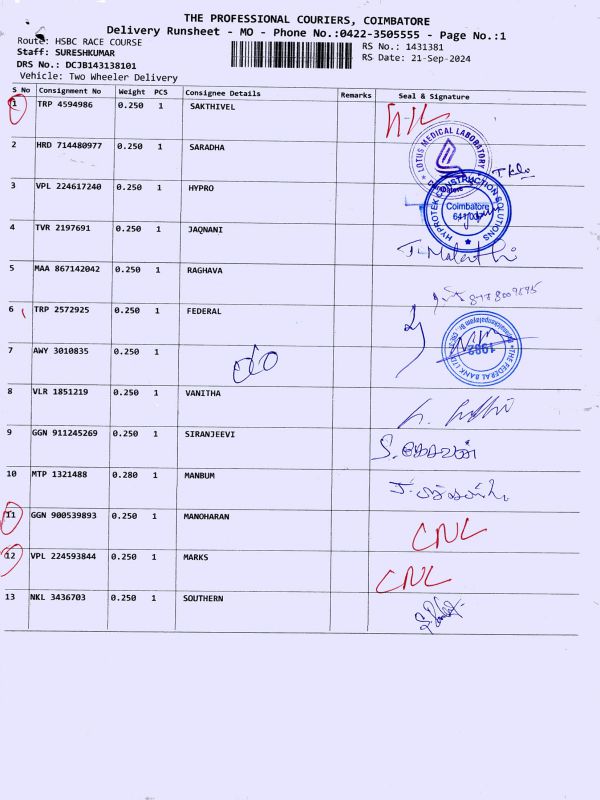 THE PROFESSIONAL COURIERS, COIMBATORE
Delivery Runsheet - MO - Phone No.:0422-3505555 - Page No.:1
Route: HSBC RACE COURSE
RS No.: 1431381
Staff: SURESHKUMAR
RS Date: 21-Sep-2024
DRS No.: DCJB143138101
Vehicle: Two Wheeler Delivery
S No Consignment No Weight PCS Consignee Details Remarks Seal & Signature
1 TRP 4594986 0.250 1 SAKTHIVEL
LOTUS MEDICAL LABORATORY
2 HRD 714480977 0.250 1 SARADHA
3 VPL 224617240 0.250 1 HYPRO
HYPROTEK CONSTRUCTION SOLUTIONS
Coimbatore
4 TVR 2197691 0.250 1 JAQNANI
T. Malathi
5 MAA 867142042 0.250 1 RAGHAVA
6 TRP 2572925 0.250 1 FEDERAL
THE FEDERAL BANK LTD.
1982
7 AWY 3010835 0.250 1
do
8 VLR 1851219 0.250 1 VANITHA
9 GGN 911245269 0.250 1 SIRANJEEVI
10 MTP 1321488 0.280 1 MANBUM
11 GGN 900539893 0.250 1 MANOHARAN CNC
12 VPL 224593844 0.250 1 MARKS CNC
13 NKL 3436703 0.250 1 SOUTHERN